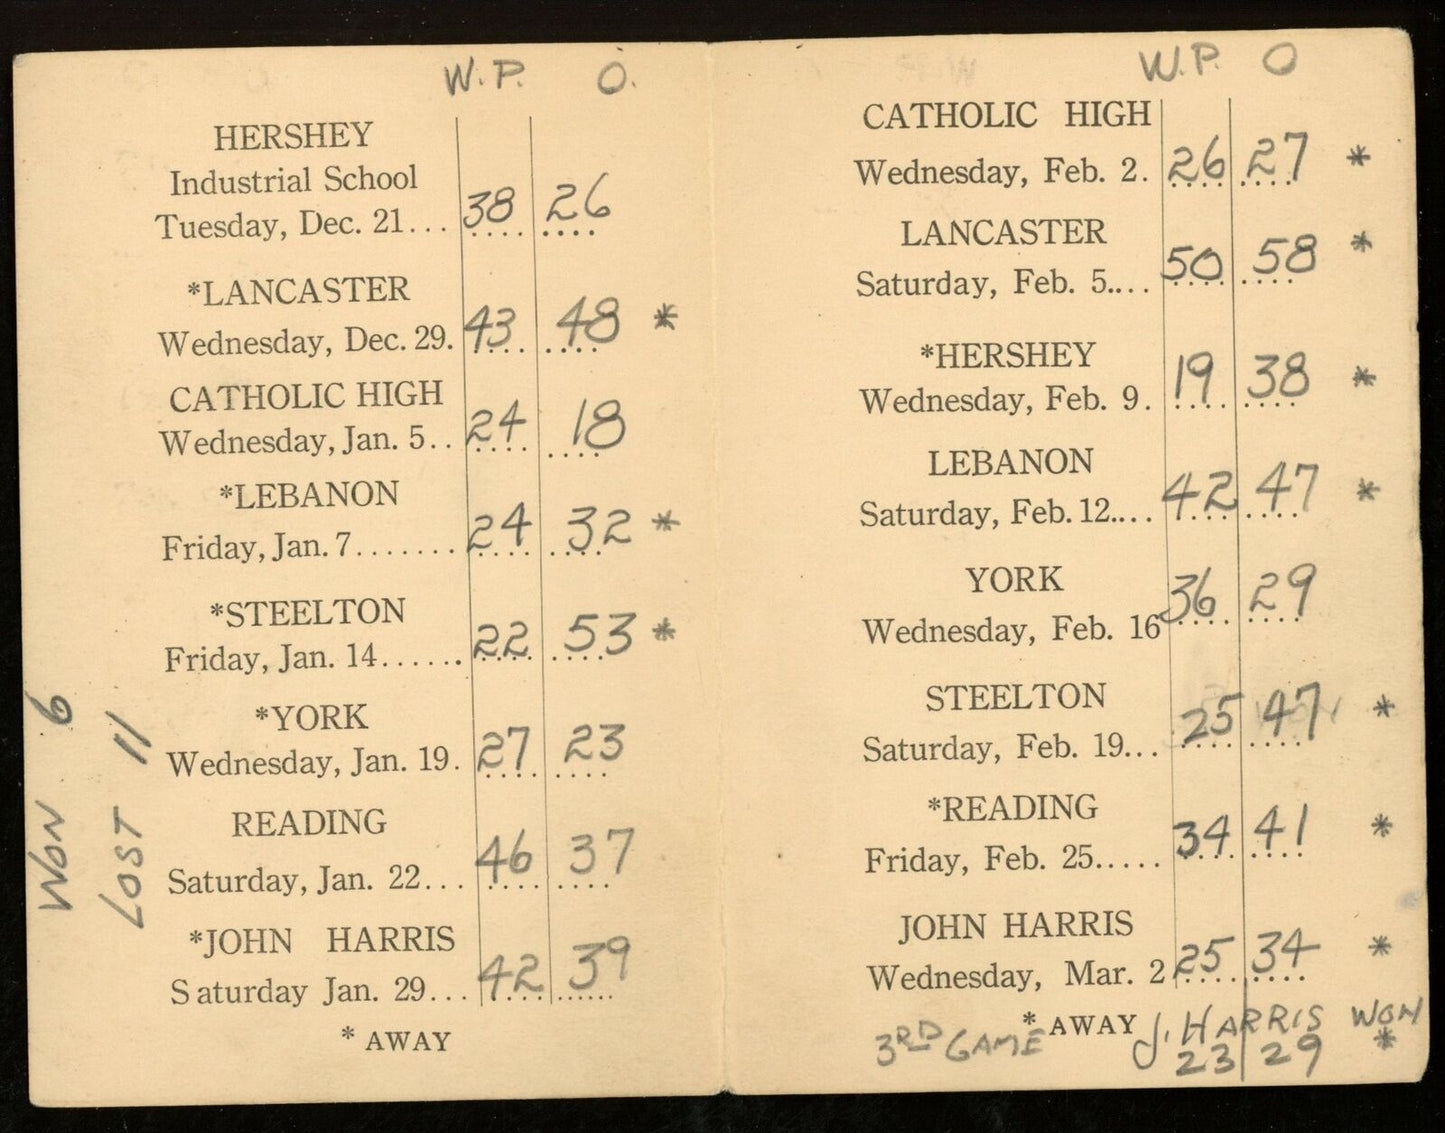 W.P. O.
HERSHEY
Industrial School
Tuesday, Dec. 21... 38 26
*LANCASTER
Wednesday, Dec. 29. 43 48 *
CATHOLIC HIGH
Wednesday, Jan. 5.. 24 18
*LEBANON
Friday, Jan. 7....... 24 32 *
*STEELTON
Friday, Jan. 14...... 22 53 *
*YORK
Wednesday, Jan. 19. 27 23
READING
Saturday, Jan. 22... 46 37
*JOHN HARRIS
Saturday Jan. 29... 42 39
* AWAY
WON 6
LOST 11
W.P. O
CATHOLIC HIGH
Wednesday, Feb. 2. 26 27 *
LANCASTER
Saturday, Feb. 5.... 50 58 *
*HERSHEY
Wednesday, Feb. 9. 19 38 *
LEBANON
Saturday, Feb. 12.... 42 47 *
YORK
Wednesday, Feb. 16 36 29
STEELTON
Saturday, Feb. 19... 25 47 *
*READING
Friday, Feb. 25..... 34 41 *
JOHN HARRIS
Wednesday, Mar. 2 25 34 *
* AWAY
3RD GAME J. HARRIS WON
23 29 *